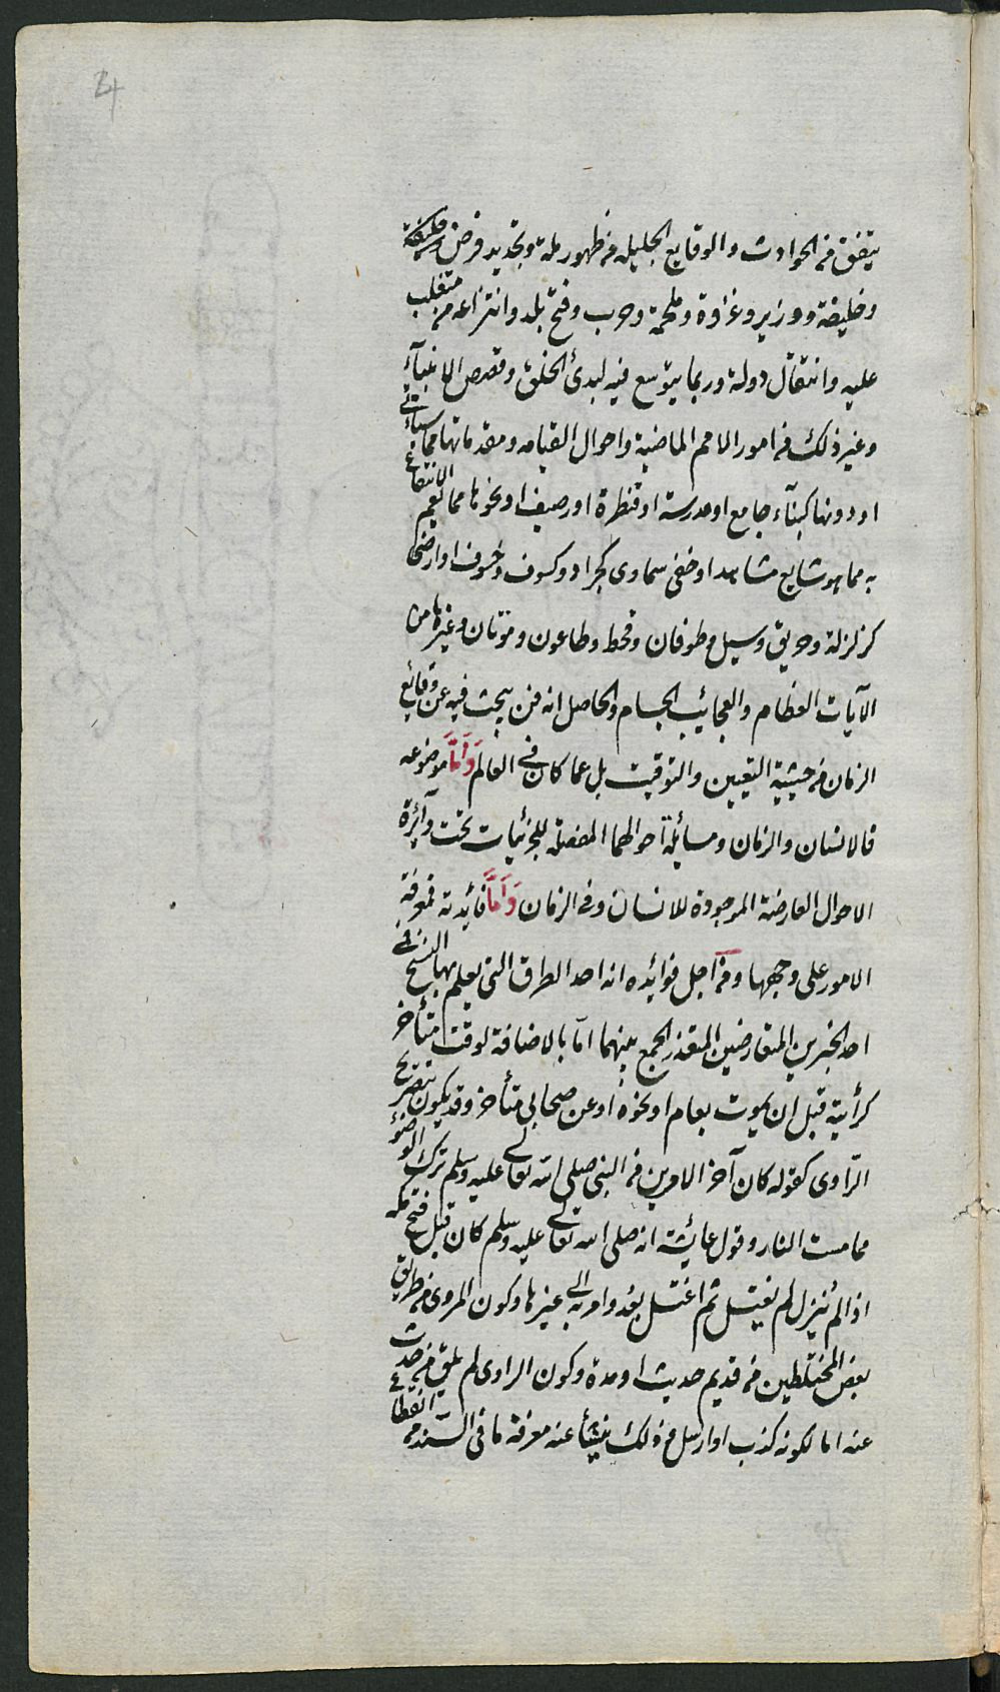 4
يتفق من الحوادث والوقايع الجليله من ظهور ملة وتجديد فرض
وخليفة ووزير وغزوة وملحمة وحرب وفتح بلد وانتزاعه من متغلب
عليه وانتقال دولة وربما يتوسع فيه لبدئ الخلق وقصص الانبيآء
وغير ذلك من امور الامم الماضية واحوال القيامه ومقدماتها مما سيأتى
او دونها كبنآء جامع او مدرسة او قنطرة او رصيف او نحوها مما يعم الانتفاع
به مما هو شايع مشاهد او خفى سماوى كجراد وكسوف وخسوف او ارضى
كزلزلة وحريق وسيل وطوفان وقحط وطاعون وموتان وغيرها من
الآيات العظام والعجائب الجسام والحاصل انه فن يبحث فيه عن وقايع
الزمان من حيثية التعيين والتوقيت بل عما كان فى العالم وَاَمَّا موضوعه
فالانسان والزمان ومسائله احوالهما المفصلة للجزئيات تحت دآئرة
الاحوال العارضة الموجودة للانسان وفى الزمان وَاَمَّا فائدته فمعرفة
الامور على وجهها ومن اجل فوائده انه احد الطرق التى يعلم بها النسخ فى
احد الخبرين المتعارضين المتعذر الجمع بينهما امّا بالاضافة لوقت متأخر
كرأيته قبل ان يموت بعام او نحوه او عن صحابى متأخر وقد يكون بتصريح
الرّاوى كقوله كان آخر الامرين من النبى صلى الله تعالى عليه وسلم ترك الوضوء
مما مست النار وقول عائشة انه صلى الله تعالى عليه وسلم كان قبل فتح مكه
اذا لم ينزل لم يغتسل ثم اغتسل بعد وامر به الى غيرها وكون المروى من طريق
بعض المختلطين من قديم حديثه او مده وكون الراوى لم يلق من حدث
عنه اما لكونه كذب او ارسل وذلك ينشأ عنه معرفة ما فى السّند من انقطاع